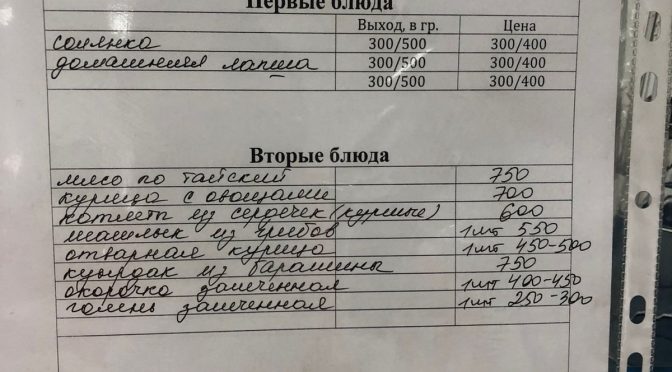 Первые блюда
Выход, в гр. Цена
солянка 300/500 300/400
домашняя лапша 300/500 300/400
300/500 300/400
Вторые блюда
мясо по тайский 750
курица с овощами 700
котлеты из сердечек (куриные) 600
шашлык из грибов 1 шт 550
отварная курица 1 шт 450-500
куырдак из баранины 750
окорочка запеченная 1 шт 400-450
голень запеченная 1 шт 250-300